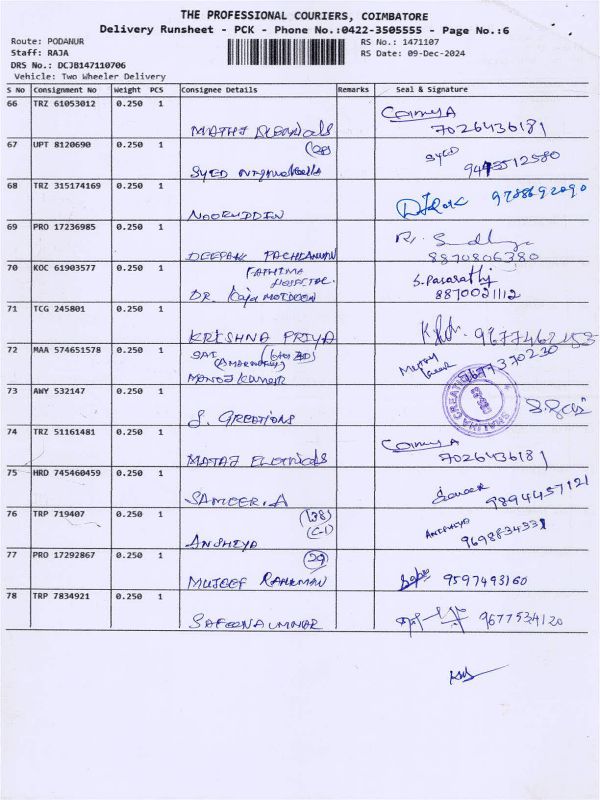 THE PROFESSIONAL COURIERS, COIMBATORE
Delivery Runsheet - PCK - Phone No.:0422-3505555 - Page No.:6
Route: PODANUR RS No.: 1471107
Staff: RAJA RS Date: 09-Dec-2024
DRS No.: DCJB147110706
Vehicle: Two Wheeler Delivery
S No Consignment No Weight PCS Consignee Details Remarks Seal & Signature
66 TRZ 61053012 0.250 1
7026436181
67 UPT 8120690 0.250 1
SYED SYED
68 TRZ 315174169 0.250 1
NOORUDDIN 9788692090
69 PRO 17236985 0.250 1
DEEPAK 8870806380
70 KOC 61903577 0.250 1 FATHIMA HOSPITAL S. Pasarathy
DR. Kaja MOIDEEN 8870021112
71 TCG 245801 0.250 1
KRISHNA PRIYA
72 MAA 574651578 0.250 1 SAI
73 AWY 532147 0.250 1
S. CREATIONS
74 TRZ 51161481 0.250 1
7026436181
75 HRD 745460459 0.250 1
SAMEER.A Sameer 9894457121
76 TRP 719407 0.250 1 (138)
(C-1)
ANSHEYA
77 PRO 17292867 0.250 1 29
MUJEEF RAHUMAN 9597493160
78 TRP 7834921 0.250 1
9677534120